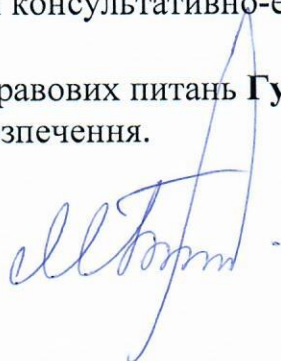 консультативно-е
равових питань Гу
зпечення.